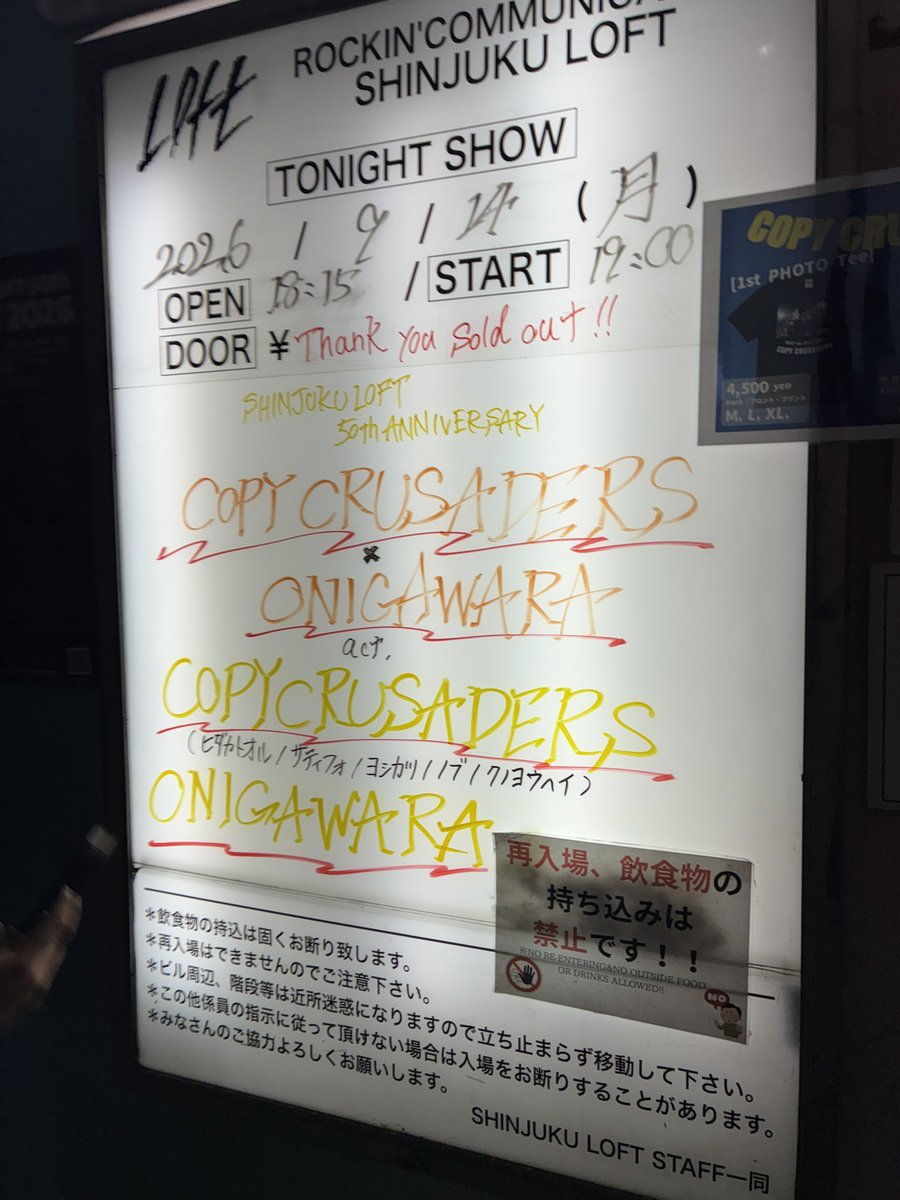 Loft
ROCKIN'COMMUNICA
SHINJUKU LOFT
TONIGHT SHOW
2026 / 9 / 14 (月)
OPEN 18:15 / START 19:00
DOOR ¥ Thank you sold out!!
SHINJUKU LOFT
50th ANNIVERSARY
COPY CRUSADERS
×
ONIGAWARA
act.
COPY CRUSADERS
(ヒダカトオル/サティフォ/ヨシカツ/ノブ/クノヨウヘイ)
ONIGAWARA
再入場、飲食物の
持ち込みは
禁止です!!
※NO RE-ENTERING&NO OUTSIDE FOOD
OR DRINKS ALLOWED!!
NO
*飲食物の持込は固くお断り致します。
*再入場はできませんのでご注意下さい。
*ビル周辺、階段等は近所迷惑になりますので立ち止まらず移動して下さい。
*この他係員の指示に従って頂けない場合は入場をお断りすることがあります。
*みなさんのご協力よろしくお願いします。
SHINJUKU LOFT STAFF一同
COPY CRU
[1st PHOTO Tee]
COPY CRUSADERS
4,500 yen
M, L, XL,
2026